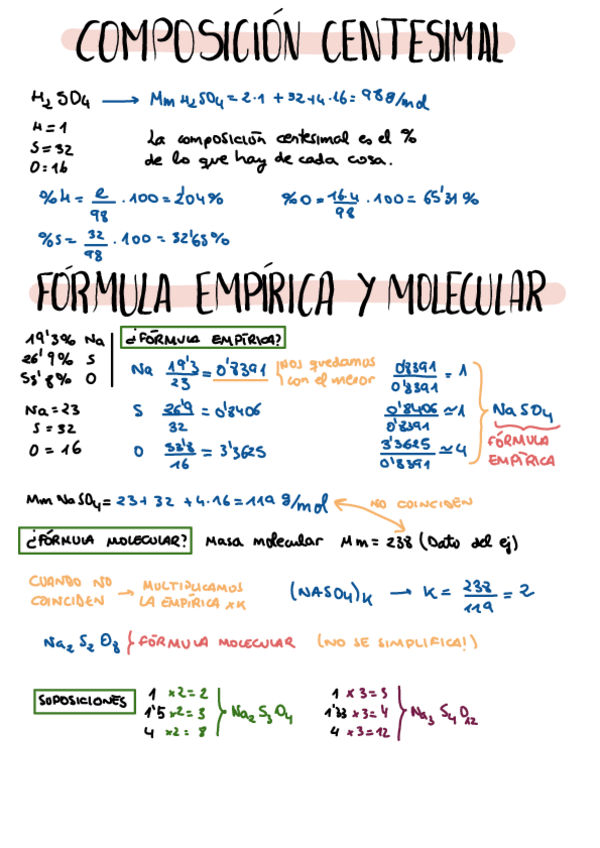 COMPOSICIÓN CENTESIMAL
H₂SO₄ → Mm H₂SO₄ = 2·1 + 32 + 4·16 = 98 g/mol
H = 1
S = 32
O = 16
La composición centesimal es el %
de lo que hay de cada cosa.
%H = 2/98 · 100 = 2'04%
%O = 16·4/98 · 100 = 65'31%
%S = 32/98 · 100 = 32'65%
FÓRMULA EMPÍRICA Y MOLECULAR
19'3% Na
26'9% S
53'8% O
Na = 23
S = 32
O = 16
¿FÓRMULA EMPÍRICA?
Na 19'3/23 = 0'8391
¡Nos quedamos
con el menor
S 26'9/32 = 0'8406
O 53'8/16 = 3'3625
0'8391/0'8391 = 1
0'8406/0'8391 ≃ 1
3'3625/0'8391 ≃ 4
NaSO₄
FÓRMULA
EMPÍRICA
Mm NaSO₄ = 23 + 32 + 4·16 = 119 g/mol
NO COINCIDEN
¿FÓRMULA MOLECULAR? Masa molecular Mm = 238 (Dato del ej)
CUANDO NO
COINCIDEN → MULTIPLICAMOS
LA EMPÍRICA x K
(NASO₄)K → K = 238/119 = 2
Na₂ S₂ O₈ } FÓRMULA MOLECULAR (NO SE SIMPLIFICA!)
SUPOSICIONES
1 x2 = 2
1'5 x2 = 3
4 x2 = 8
Na₂ S₃ O₄
1 x 3 = 3
1'33 x 3 = 4
4 x 3 = 12
Na₃ S₄ O₁₂